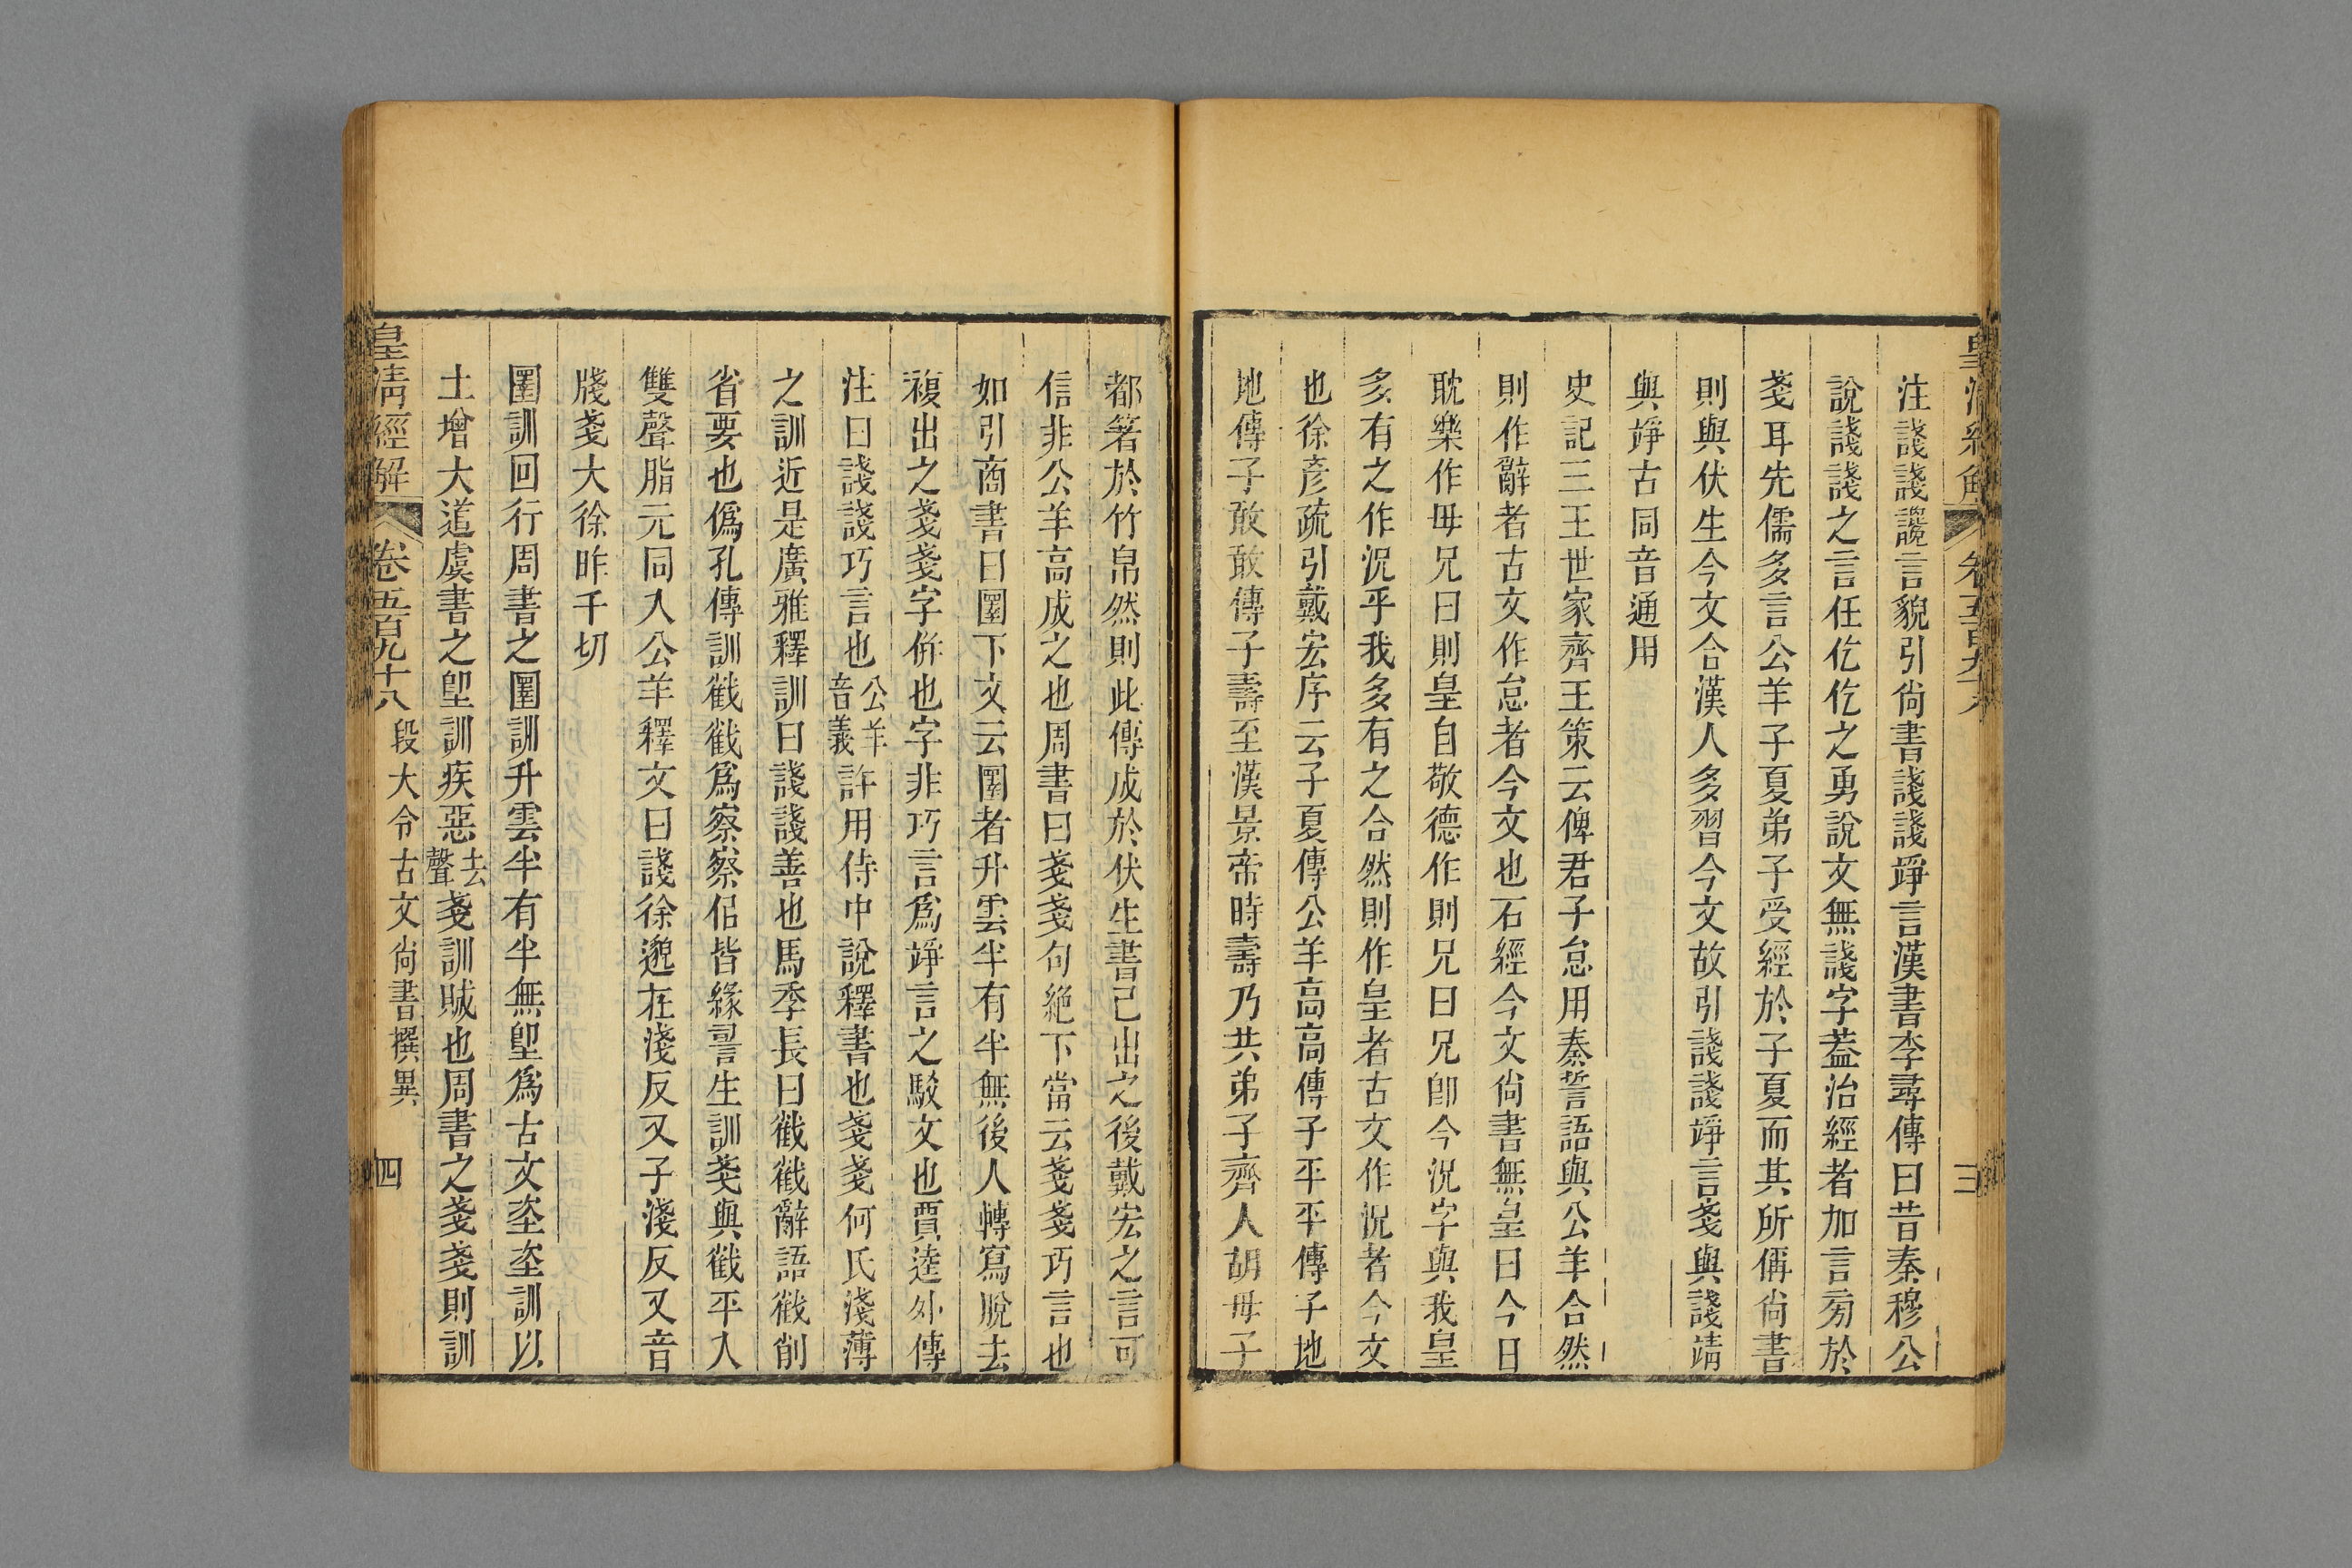 皇清經解 卷五百九十八 三
注諓諓讒言貌引尙書諓諓竫言漢書李尋傳曰昔秦穆公
說諓諓之言任仡仡之勇說文無諓字葢治經者加言㫄於
戔耳先儒多言公羊子夏弟子受經於子夏而其所偁尙書
則與伏生今文合漢人多習今文故引諓諓竫言戔與諓靖
與竫古同音通用
史記三王世家齊王策云俾君子怠用秦誓語與公羊合然
則作辭者古文作怠者今文也石經今文尙書無皇曰今日
耽樂作毋兄曰則皇自敬德作則兄曰兄卽今況字與我皇
多有之作況乎我多有之合然則作皇者古文作況者今文
也徐彥疏引戴宏序云子夏傳公羊高高傳子平平傳子地
地傳子敢敢傳子壽至漢景帝時壽乃共弟子齊人胡毋子
都箸於竹帛然則此傳成於伏生書已出之後戴宏之言可
信非公羊高成之也周書曰戔戔句絕下當云戔戔巧言也
如引商書曰圛下文云圛者升雲半有半無後人轉寫脫去
複出之戔戔字倂也字非巧言爲竫言之駁文也賈逵外傳
注曰諓諓巧言也公羊音義許用侍中說釋書也戔戔何氏淺薄
之訓近是廣雅釋訓曰諓諓善也馬季長曰截截辭語截削
省要也僞孔傳訓截截爲察察佀皆緣詈生訓戔與截平入
雙聲脂元同入公羊釋文曰諓徐邈在淺反又子淺反又音
牋戔大徐昨千切
圛訓回行周書之圛訓升雲半有半無堲爲古文垐垐訓以
土增大道虞書之堲訓疾惡去聲戔訓賊也周書之戔戔則訓
皇清經解 卷五百九十八 段大令古文尙書撰異 四